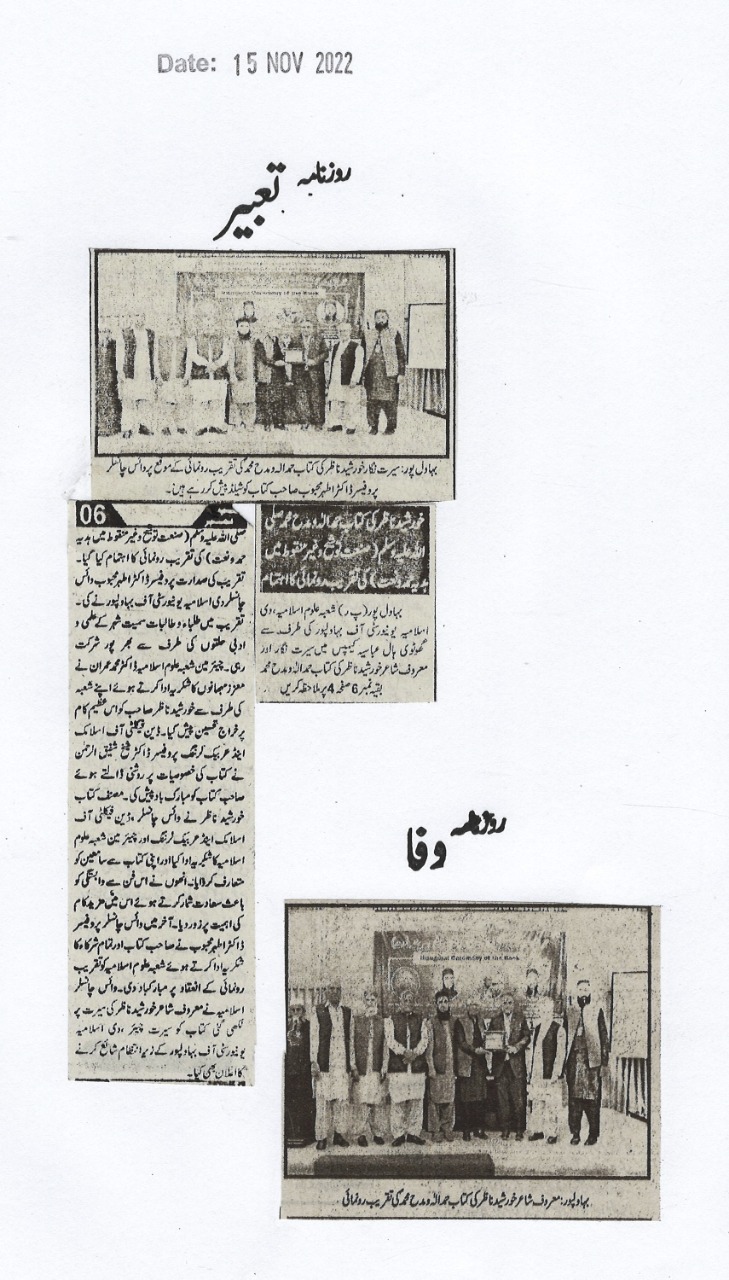 Date: 15 NOV 2022
روزنامہ
تعبیر
Inaugural Ceremony of the Book
بہاول پور: سیرت نگار خورشید ناظر کی کتاب حمد الٰہ و مدح محمدؐ کی تقریب رونمائی کے موقع پر وائس چانسلر
پروفیسر ڈاکٹر اطہر محبوب صاحب کتاب کو شیلڈ پیش کر رہے ہیں۔
خورشید ناظر کی کتاب حمد الٰہ و مدح محمد صلی
اللہ علیہ وسلم (صنعت توشیح و غیر منقوط میں
ہدیہ حمد و نعت) کی تقریب رونمائی کا اہتمام
بہاول پور (پ ر) شعبہ علوم اسلامیہ، دی
اسلامیہ یونیورسٹی آف بہاولپور کی طرف سے
گھوٹوی ہال عباسیہ کیمپس میں سیرت نگار اور
معروف شاعر خورشید ناظر کی کتاب حمد الٰہ و مدح محمد
بقیہ نمبر 6 صفحہ 4 پر ملاحظہ کریں
بقیہ نمبر 06
صلی اللہ علیہ وسلم (صنعت توشیح و غیر منقوط میں ہدیہ
حمد و نعت) کی تقریب رونمائی کا اہتمام کیا گیا۔
تقریب کی صدارت پروفیسر ڈاکٹر اطہر محبوب وائس
چانسلر دی اسلامیہ یونیورسٹی آف بہاولپور نے کی۔
تقریب میں طلباء و طالبات سمیت شہر کے علمی و
ادبی حلقوں کی طرف سے بھر پور شرکت
رہی۔ چیئر مین شعبہ علوم اسلامیہ ڈاکٹر محمد عمران نے
معزز مہمانوں کا شکریہ ادا کرتے ہوئے اپنے شعبہ
کی طرف سے خورشید ناظر صاحب کو اس عظیم کام
پر خراج تحسین پیش کیا۔ ڈین فیکلٹی آف اسلامک
اینڈ عریبک لرننگ پروفیسر ڈاکٹر شیخ شفیق الرحمٰن
نے کتاب کی خصوصیات پر روشنی ڈالتے ہوئے
صاحب کتاب کو مبارک باد پیش کی۔ مصنف کتاب
خورشید ناظر نے وائس چانسلر، ڈین فیکلٹی آف
اسلامک اینڈ عریبک لرننگ اور چیئر مین شعبہ علوم
اسلامیہ کا شکریہ ادا کیا اور اپنی کتاب سے سامعین کو
متعارف کروایا۔ انھوں نے اس فن سے وابستگی کو
باعث سعادت شمار کرتے ہوئے اس میں مزید کام
کی اہمیت پر زور دیا۔ آخر میں وائس چانسلر پروفیسر
ڈاکٹر اطہر محبوب نے صاحب کتاب اور تمام شرکاء کا
شکریہ ادا کرتے ہوئے شعبہ علوم اسلامیہ کو تقریب
رونمائی کے انعقاد پر مبارکباد دی۔ وائس چانسلر
نے معروف شاعر خورشید ناظر کی سیرت پر
لکھی گئی کتاب کو سیرت چیئر، دی اسلامیہ
یونیورسٹی آف بہاولپور کے زیر انتظام شائع کرنے
کا اعلان بھی کیا۔
روزنامہ
وفا
Inaugural Ceremony of the Book
بہاولپور: معروف شاعر خورشید ناظر کی کتاب حمد الٰہ و مدح محمدؐ کی تقریب رونمائی